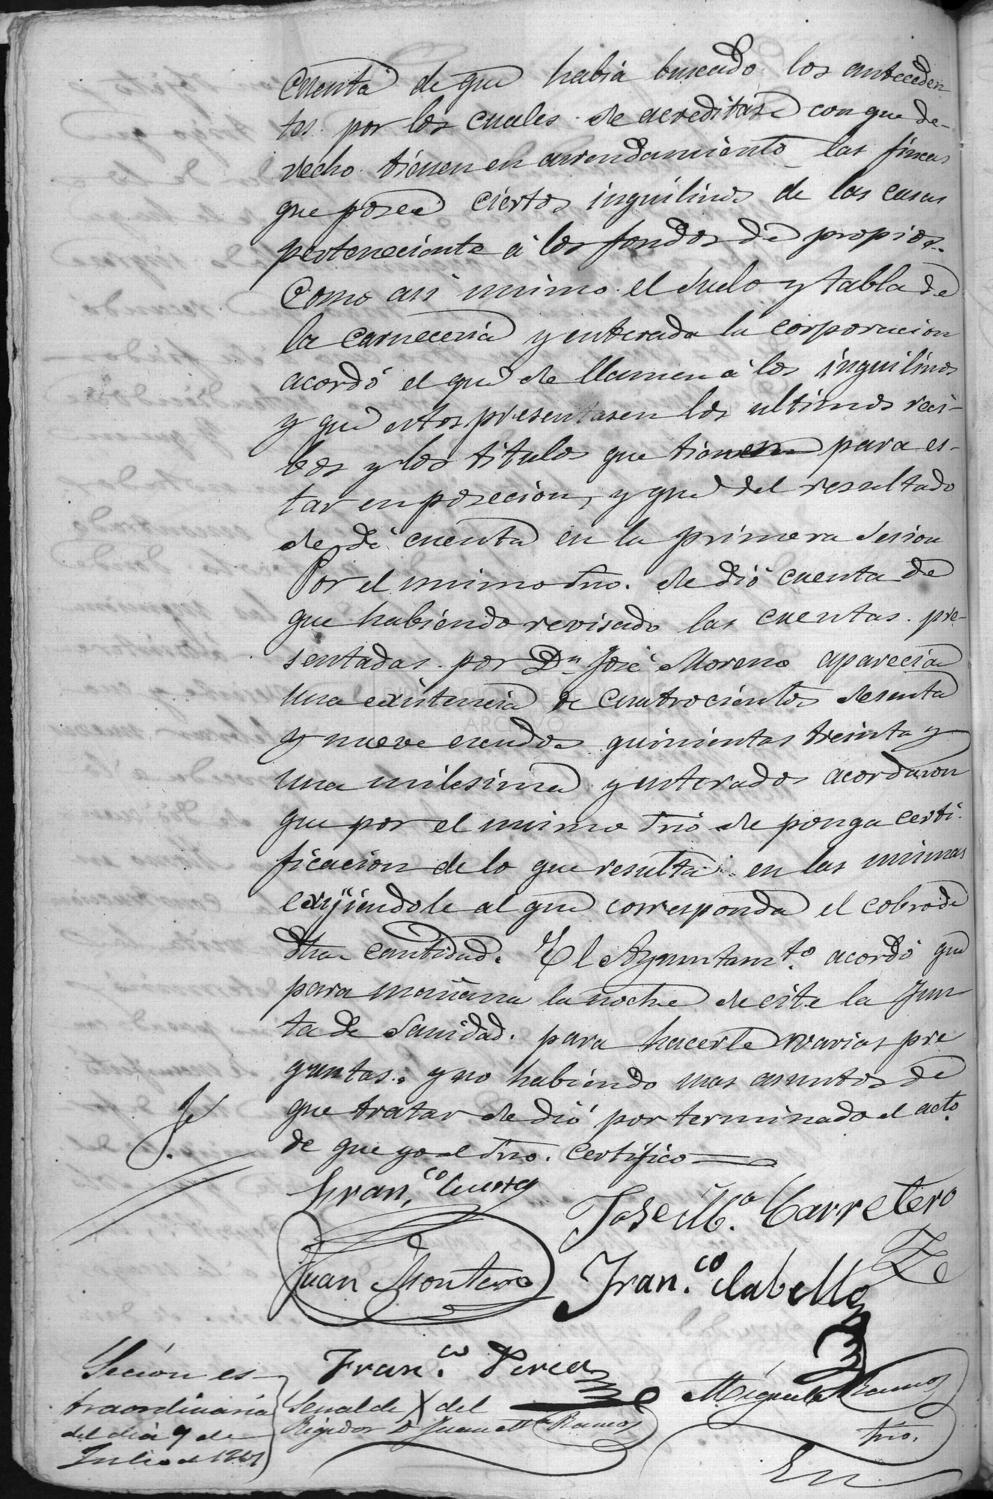 cuenta de que habia buscado los anteceden
tes por los cuales se acreditase con que de-
recho tienen en arrendamiento las fincas
que posea ciertos inquilinos de las casas
perteneciente á los fondos de propios.
Como asi mismo el suelo y tabla de
la carneceria y enterada la corporacion
acordó el que se llamen á los inquilinos
y que estos presentasen los ultimos reci-
bos y los titulos que tienen para es-
tar en posecion, y que del resultado
se dé cuenta en la primera sesion
Por el mismo Srio. se dió cuenta de
que habiendo revisado las cuentas pre-
sentadas por Dn José Moreno aparecia
una existencia de cuatrocientos sesenta
y nueve escudos quinientas treinta y
una milesima y enterados acordaron
que por el mismo Srio se ponga certi-
ficacion de lo que resulta en las mismas
exijiendole al que corresponda el cobro de
dha cantidad. El Ayuntamto. acordó que
para mañana la noche se cite la Jun
ta de Sanidad. para hacerle varias pre
guntas. y no habiendo mas asuntos de
que tratar se dió por terminado el acto
de que yo el Srio. Certifico
Franco.
José Ma. Carretero
Juan Montero
Franco. Cabello
Franco. Perea
Miguel Ramos
Srio.
Señal de X del
Regidor D Juan Ramos
Seción es-
traordinaria
del dia 9 de
Julio de
En